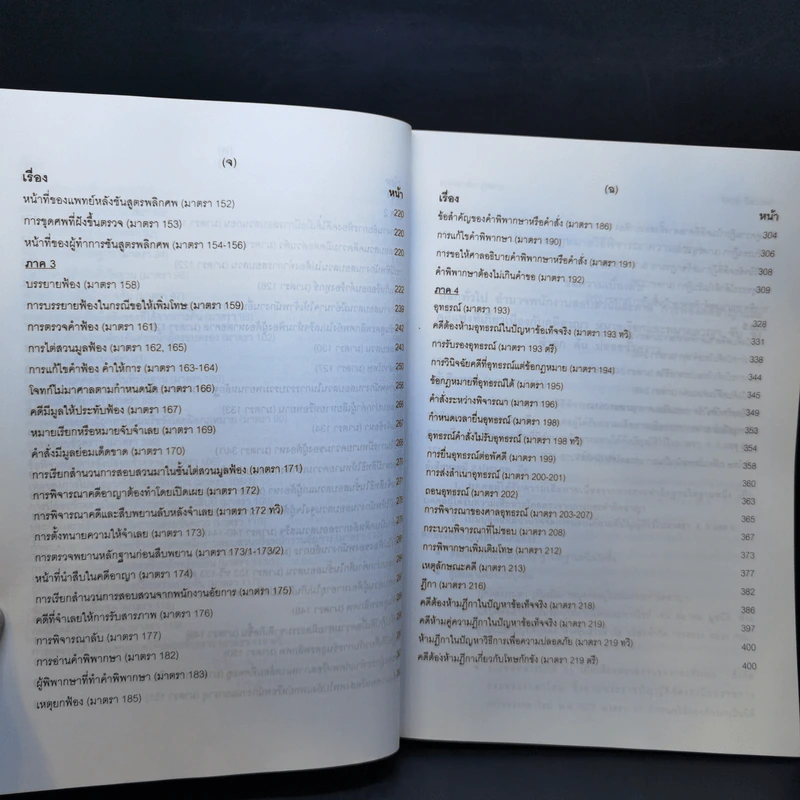 (จ)
เรื่อง หน้า
หน้าที่ของแพทย์หลังชันสูตรพลิกศพ (มาตรา 152) 220
การขุดศพที่ฝังขึ้นตรวจ (มาตรา 153) 220
หน้าที่ของผู้ทำการชันสูตรพลิกศพ (มาตรา 154-156) 220
ภาค 3
บรรยายฟ้อง (มาตรา 158) 222
การบรรยายฟ้องในกรณีขอให้เพิ่มโทษ (มาตรา 159) 239
การตรวจคำฟ้อง (มาตรา 161)
การไต่สวนมูลฟ้อง (มาตรา 162, 165)
การแก้ไขคำฟ้อง คำให้การ (มาตรา 163-164)
โจทก์ไม่มาศาลตามกำหนดนัด (มาตรา 166)
คดีมีมูลให้ประทับฟ้อง (มาตรา 167)
หมายเรียกหรือหมายจับจำเลย (มาตรา 169)
คำสั่งมีมูลย่อมเด็ดขาด (มาตรา 170)
การเรียกสำนวนการสอบสวนมาในชั้นไต่สวนมูลฟ้อง (มาตรา 171)
การพิจารณาคดีอาญาต้องทำโดยเปิดเผย (มาตรา 172)
การพิจารณาคดีและสืบพยานลับหลังจำเลย (มาตรา 172 ทวิ)
การตั้งทนายความให้จำเลย (มาตรา 173)
การตรวจพยานหลักฐานก่อนสืบพยาน (มาตรา 173/1-173/2)
หน้าที่นำสืบในคดีอาญา (มาตรา 174)
การเรียกสำนวนการสอบสวนจากพนักงานอัยการ (มาตรา 175)
คดีที่จำเลยให้การรับสารภาพ (มาตรา 176)
การพิจารณาลับ (มาตรา 177)
การอ่านคำพิพากษา (มาตรา 182)
ผู้พิพากษาที่ทำคำพิพากษา (มาตรา 183)
เหตุยกฟ้อง (มาตรา 185)
(ฉ)
เรื่อง หน้า
ข้อสำคัญของคำพิพากษาหรือคำสั่ง (มาตรา 186) 304
การแก้ไขคำพิพากษา (มาตรา 190) 306
การขอให้ศาลอธิบายคำพิพากษาหรือคำสั่ง (มาตรา 191) 308
คำพิพากษาต้องไม่เกินคำขอ (มาตรา 192) 309
ภาค 4
อุทธรณ์ (มาตรา 193) 328
คดีต้องห้ามอุทธรณ์ในปัญหาข้อเท็จจริง (มาตรา 193 ทวิ) 331
การรับรองอุทธรณ์ (มาตรา 193 ตรี) 338
การวินิจฉัยคดีที่อุทธรณ์แต่ข้อกฎหมาย (มาตรา 194) 344
ข้อกฎหมายที่อุทธรณ์ได้ (มาตรา 195) 345
คำสั่งระหว่างพิจารณา (มาตรา 196) 349
กำหนดเวลายื่นอุทธรณ์ (มาตรา 198) 351
อุทธรณ์คำสั่งไม่รับอุทธรณ์ (มาตรา 198 ทวิ) 354
การยื่นอุทธรณ์ต่อพัศดี (มาตรา 199) 358
การส่งสำเนาอุทธรณ์ (มาตรา 200-201) 360
ถอนอุทธรณ์ (มาตรา 202) 363
การพิจารณาของศาลอุทธรณ์ (มาตรา 203-207) 365
กระบวนพิจารณาที่ไม่ชอบ (มาตรา 208) 369
การพิพากษาเพิ่มเติมโทษ (มาตรา 212) 373
เหตุลักษณะคดี (มาตรา 213) 377
ฎีกา (มาตรา 216) 382
คดีต้องห้ามฎีกาในปัญหาข้อเท็จจริง (มาตรา 218) 386
คดีห้ามคู่ความฎีกาในปัญหาข้อเท็จจริง (มาตรา 219) 397
ห้ามฎีกาในปัญหาวิธีการเพื่อความปลอดภัย (มาตรา 219 ทวิ) 400
คดีต้องห้ามฎีกาเกี่ยวกับโทษกักขัง (มาตรา 219 ตรี) 400